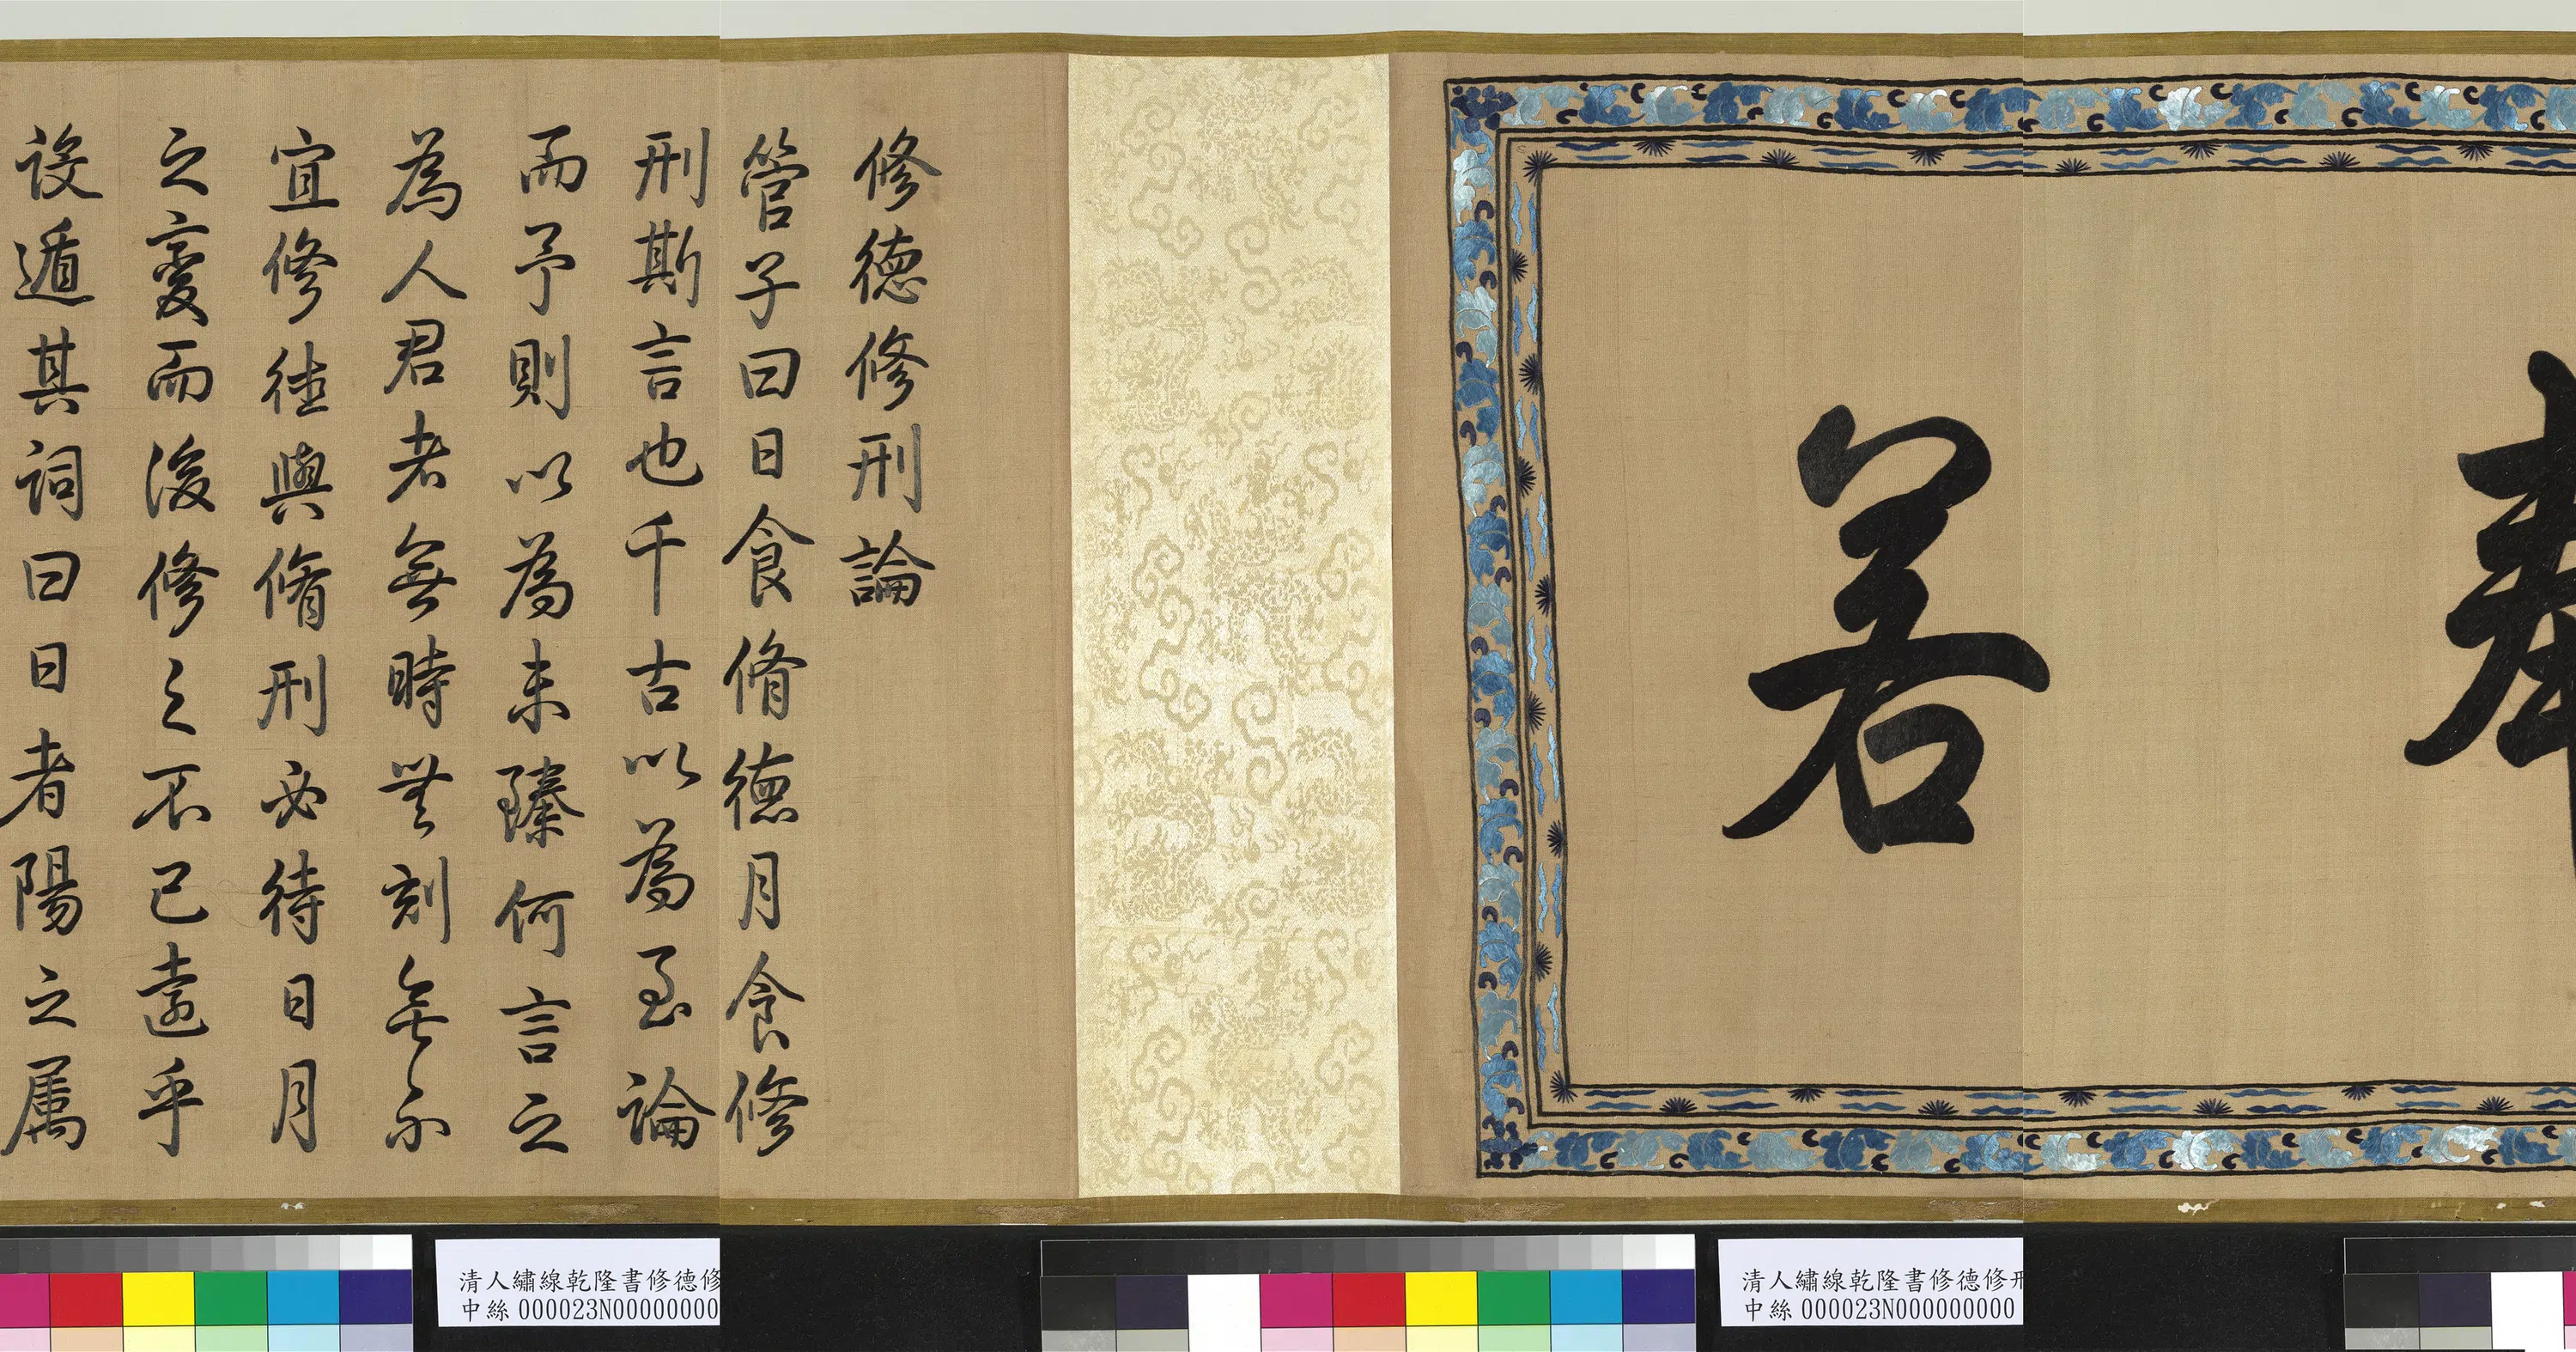 奉
若
修德修刑論
管子曰日食脩德月食修
刑斯言也千古以為至論
而予則以為未臻何言之
為人君者無時無刻無不
宜修德與脩刑必待日月
之變而後修之不已遠乎
設遁其詞曰日者陽之属
清人繡線乾隆書修德修刑
中絲 000023N000000000
清人繡線乾隆書修德修
中絲 000023N00000000